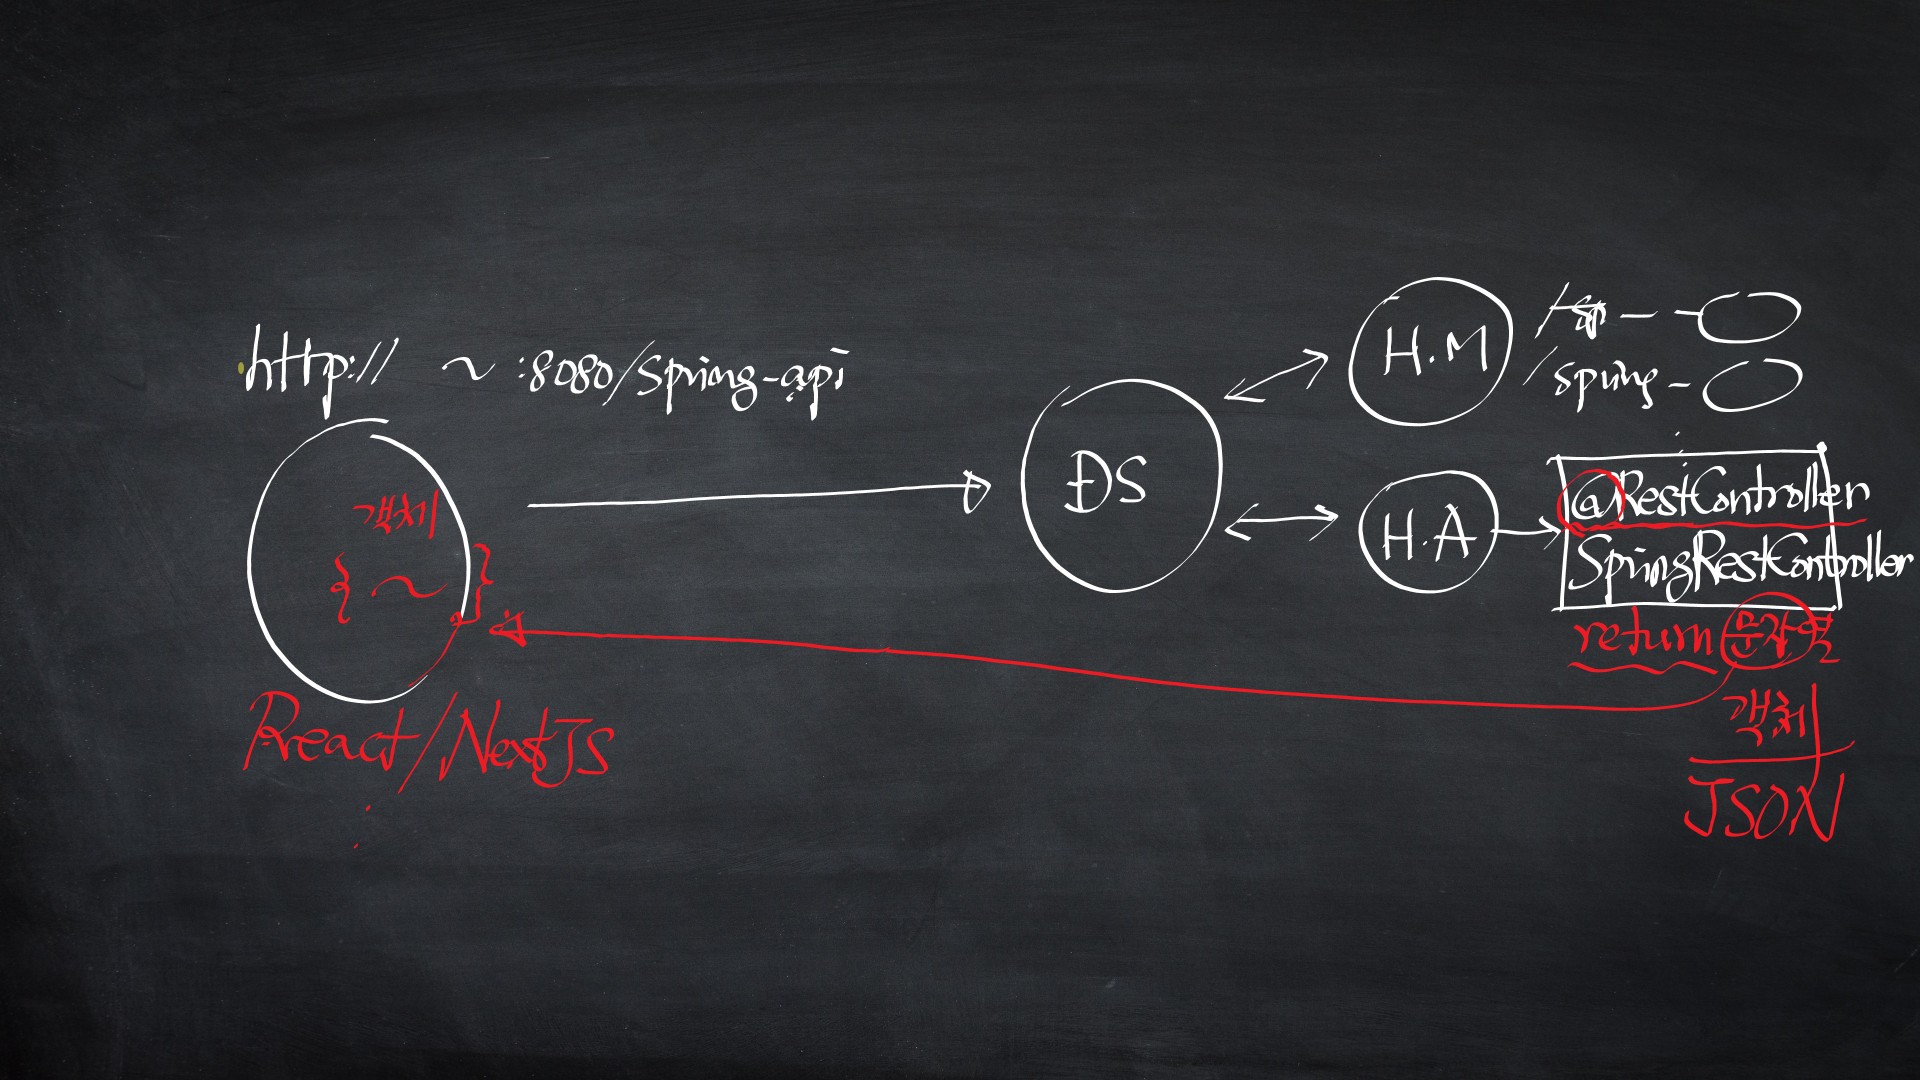 http:// ~ :8080/spring-api
객체
{ ~ }
React/NextJS
DS
H.M
/spring -
H.A
@RestController
SpringRestController
return 문자열
객체
JSON